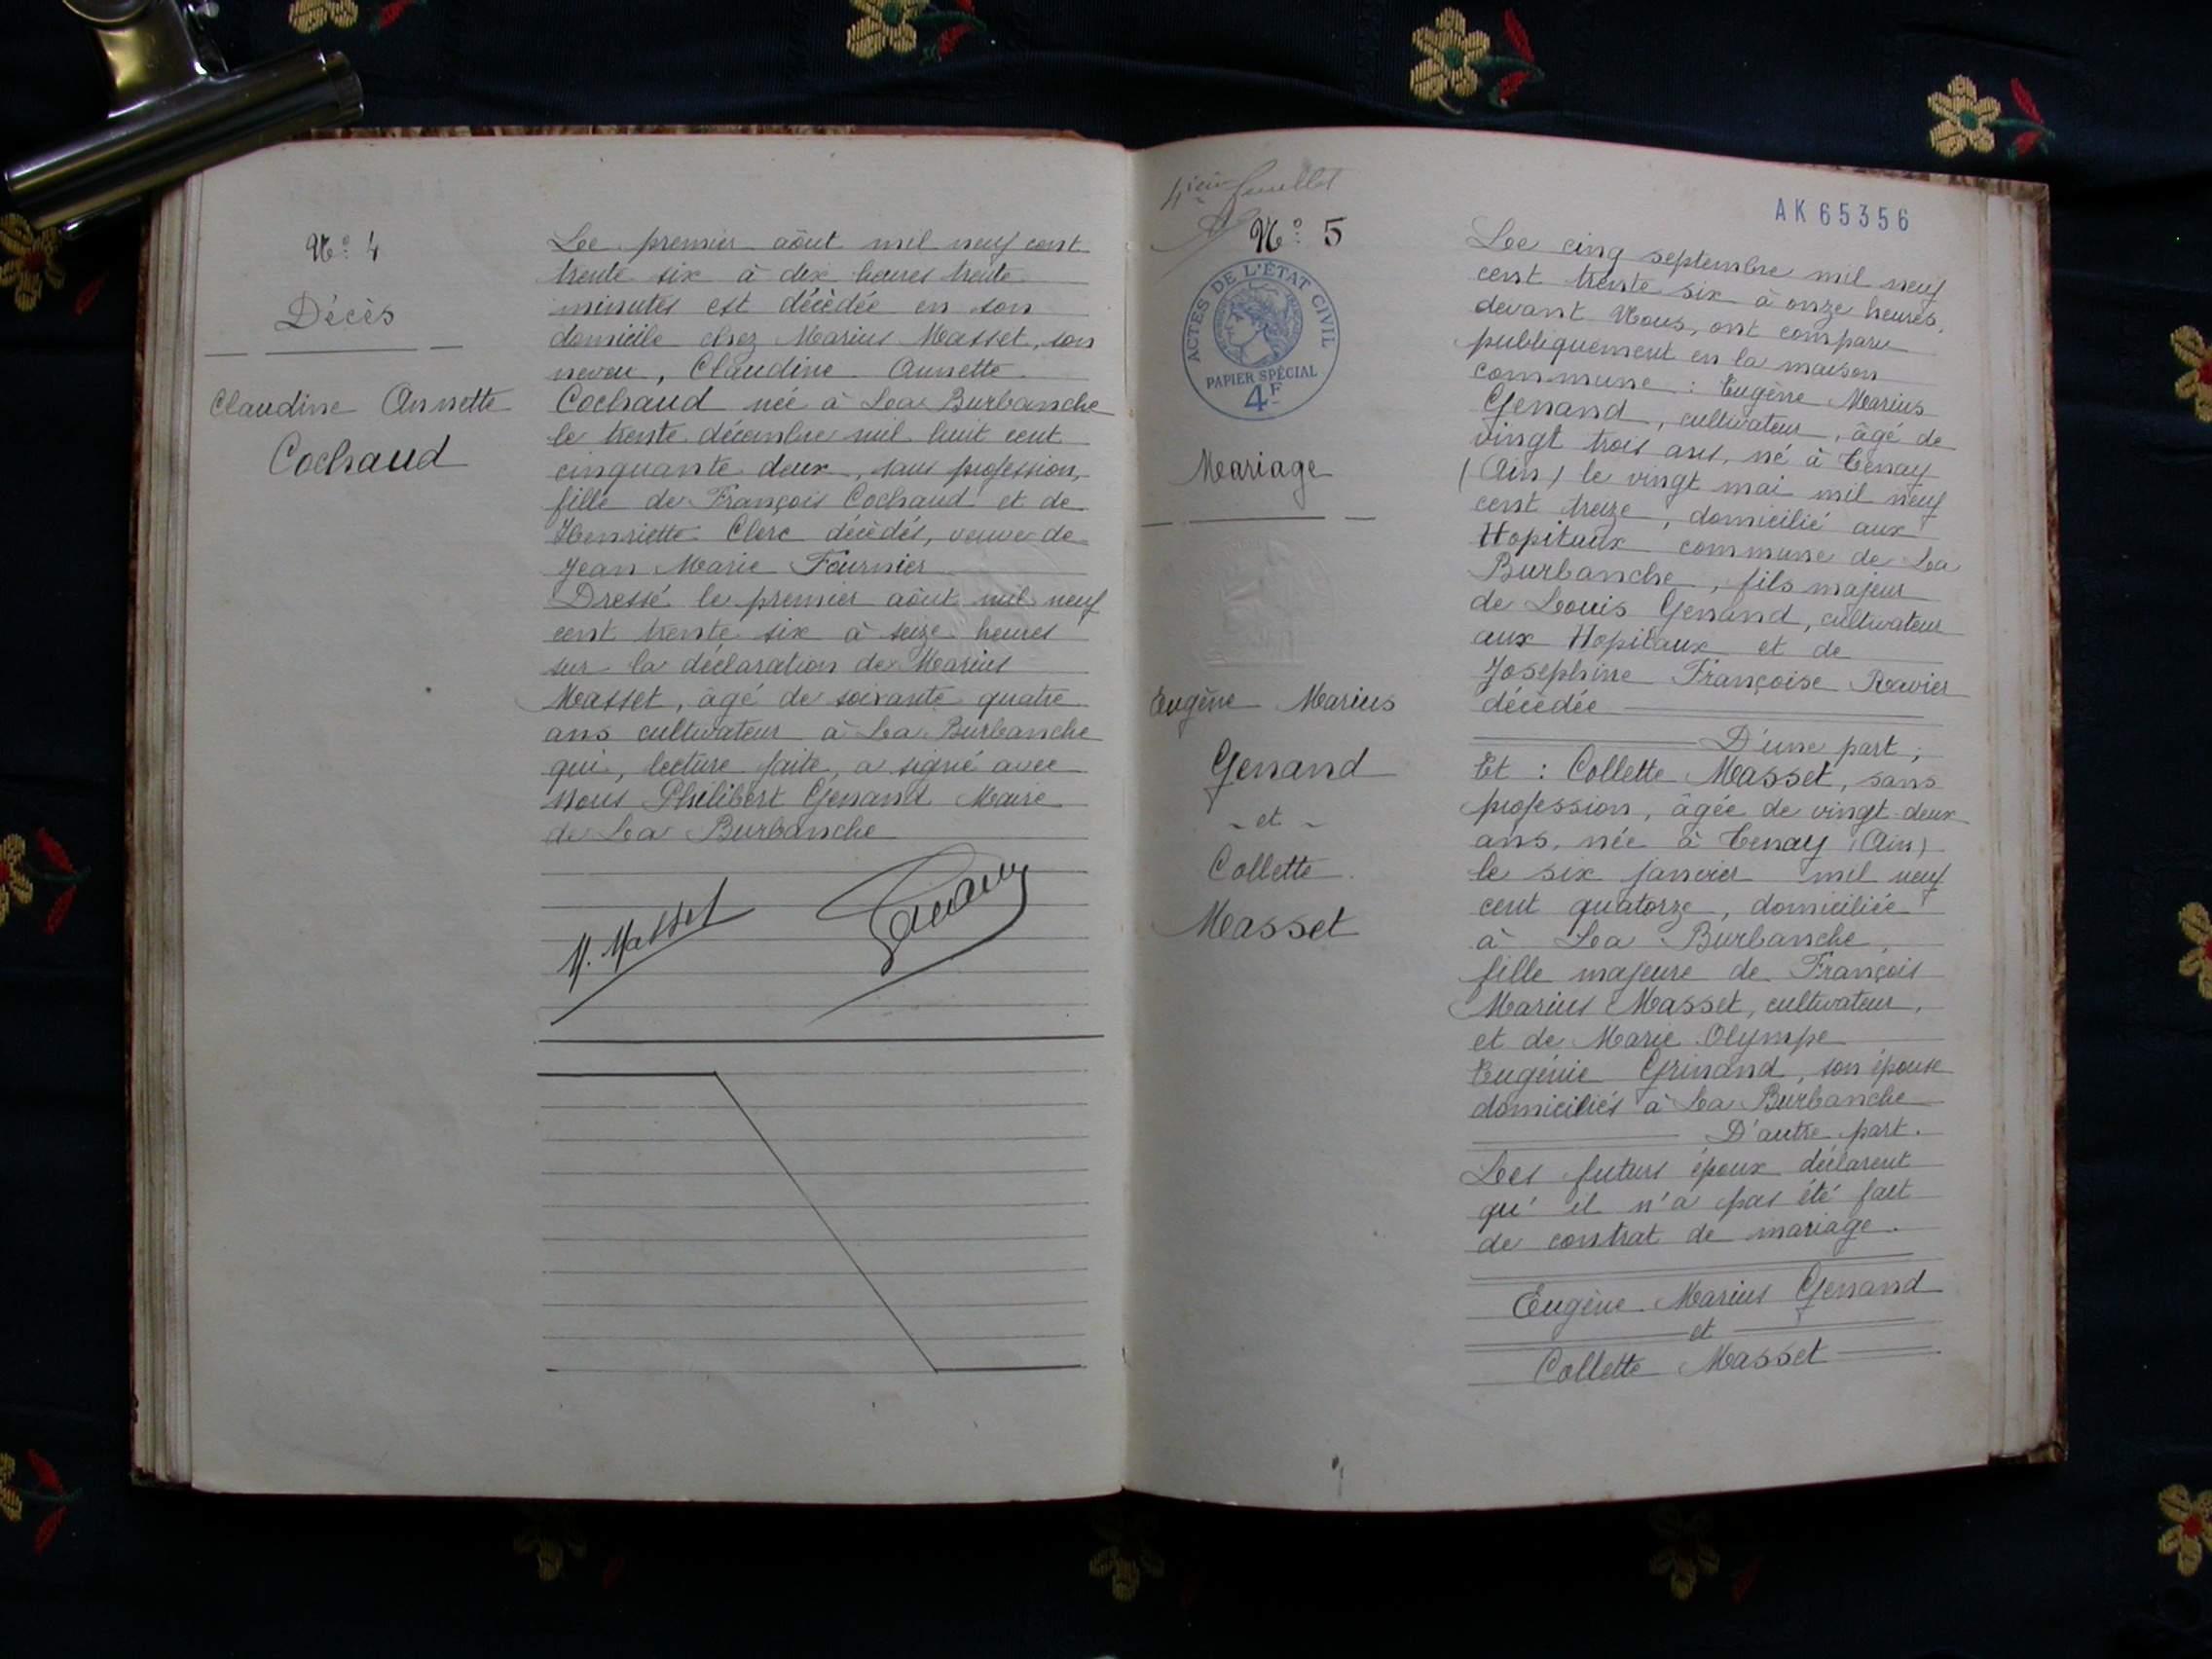 N° 4
Décès
Claudine Annette
Cochaud
Le premier aôut mil neuf cent
trente six à dix heures trente
minutes est décèdée en son
domicile chez Marius Masset, son
neveu, Claudine Annette
Cochaud née à La Burbanche
le trente décembre mil huit cent
cinquante deux, sans profession,
fille de François Cochaud et de
Henriette Clerc décèdés, veuve de
Jean Marie Fournier
Dressé le premier aôut mil neuf
cent trente six à seize heures
sur la déclaration de Marius
Masset, âgé de soixante quatre
ans cultivateur à La Burbanche
qui, lecture faite, a signé avec
Nous Philibert Genand Maire
de La Burbanche
M. Masset
Genand
feuillet
N° 5
AK65356
ACTES DE L'ÉTAT CIVIL
PAPIER SPÉCIAL
4F
Mariage
Eugène Marius
Genand
- et -
Collette
Masset
Le cinq septembre mil neuf
cent trente six à onze heures,
devant Nous, ont comparu
publiquement en la maison
commune : Eugène Marius
Genand, cultivateur, âgé de
vingt trois ans, né à Tenay
(Ain) le vingt mai mil neuf
cent treize, domicilié aux
Hopitaux commune de La
Burbanche, fils majeur
de Louis Genand, cultivateur
aux Hopitaux et de
Josephine Françoise Ravier
décèdée
D'une part,
Et : Collette Masset, sans
profession, âgée de vingt-deux
ans, née à Tenay (Ain)
le six janvier mil neuf
cent quatorze, domiciliée
à La Burbanche,
fille majeure de François
Marius Masset, cultivateur,
et de Marie Olympe
Eugénie Grinand, son épouse
domiciliés à La Burbanche
D'autre part.
Les futurs époux déclarent
qu'il n'a pas été fait
de contrat de mariage.
Eugène Marius Genand
et
Collette Masset